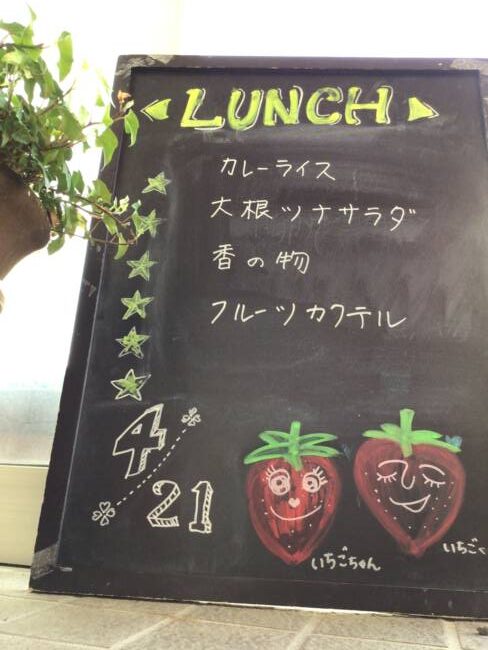 LUNCH
カレーライス
大根ツナサラダ
香の物
フルーツカクテル
4/21
いちごちゃん
いちごく